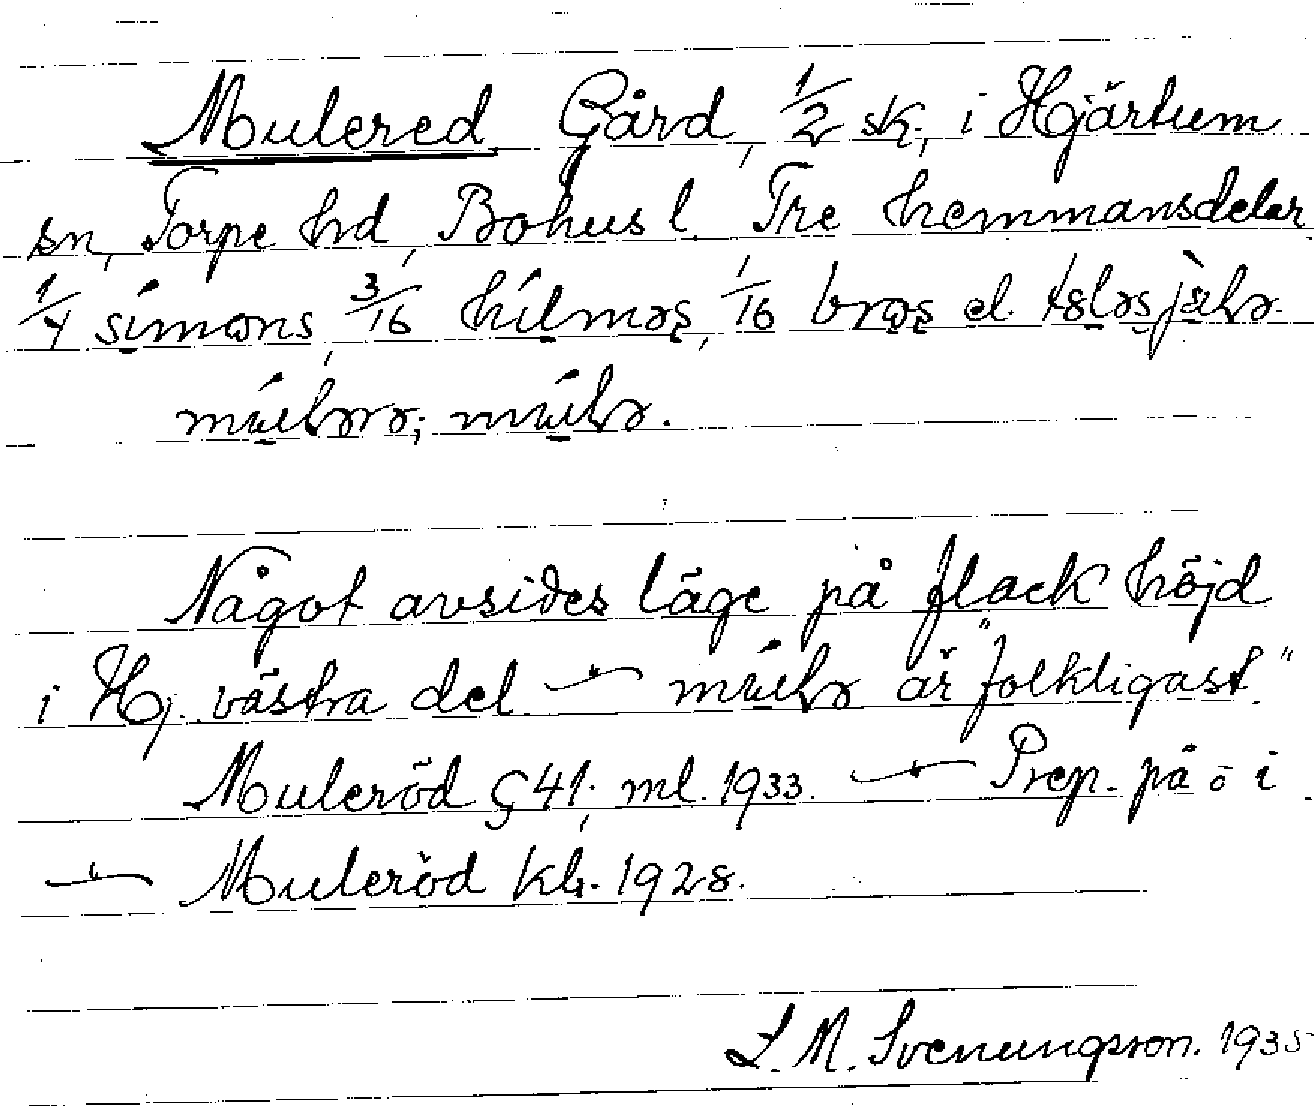 Mulered Gård, 1/2 sk, i Hjärtum
sn, Torpe hd, Bohus l. Tre hemmansdelar
1/4 símɷns, 3/16 hílməs, 1/16 el.
múlərə; múlə.
Något avsides läge på flack höjd
i Hj. västra del. — múlə är "folkligast"
Muleröd §41; ml. 1933. — Prep. på ō i
— Muleröd kh. 1928.
L. M. Svenungsson. 1935